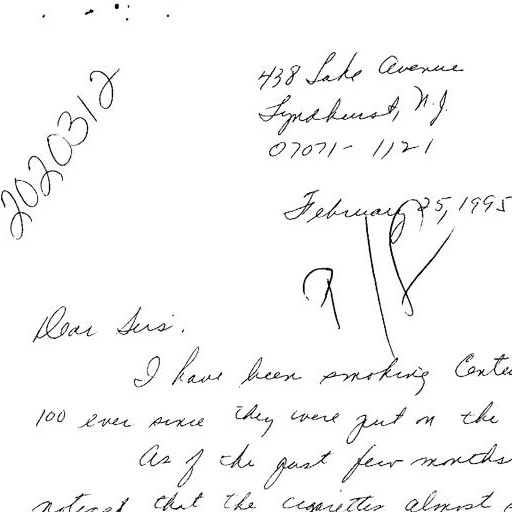 438 Lake Avenue
Lyndhurst, N.J.
07071-1121
2020312
February 25, 1995
Dear Sirs.
I have been smoking
100 ever since they were put on the
As of the past few months
noticed that the cigarettes almost